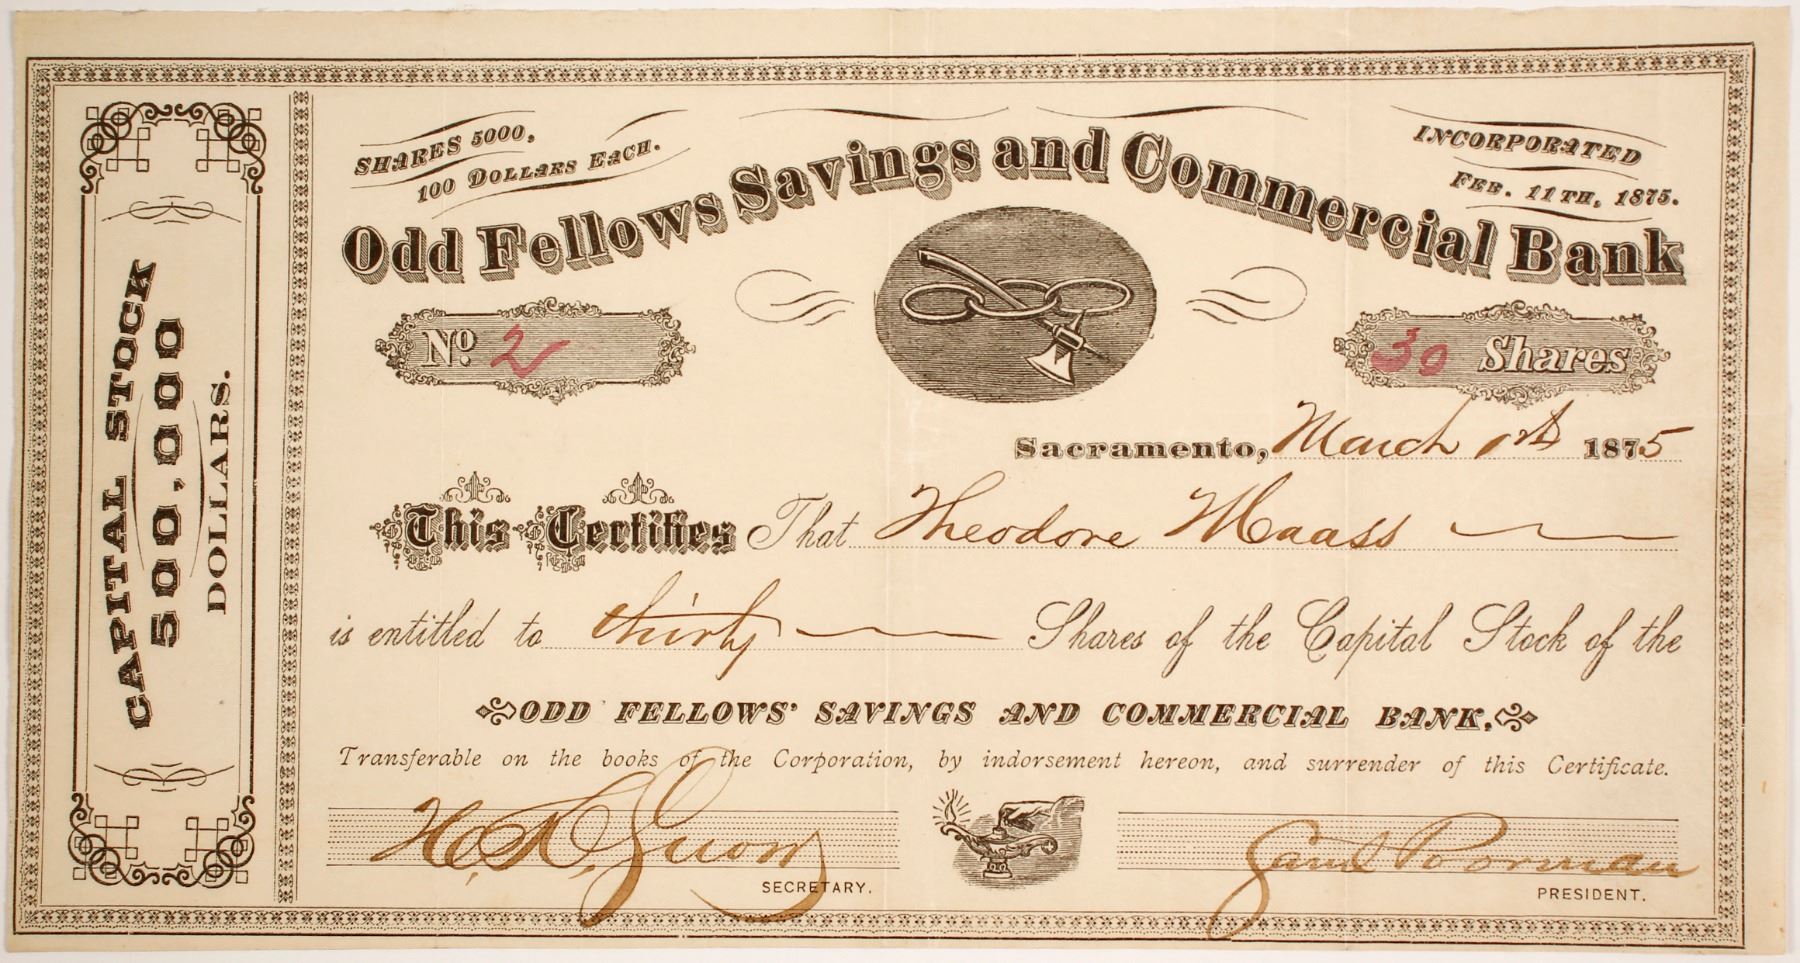 CAPITAL STOCK
500,000
DOLLARS.
SHARES 5000,
100 DOLLARS EACH.
INCORPORATED
FEB. 11TH, 1875.
Odd Fellows Savings and Commercial Bank
No. 2
30 Shares
Sacramento, March 1st 1875
This Certifies That Theodore Maass
is entitled to thirty Shares of the Capital Stock of the
ODD FELLOWS' SAVINGS AND COMMERCIAL BANK.
Transferable on the books of the Corporation, by indorsement hereon, and surrender of this Certificate.
H. K. Snow
SECRETARY.
Saml Poorman
PRESIDENT.